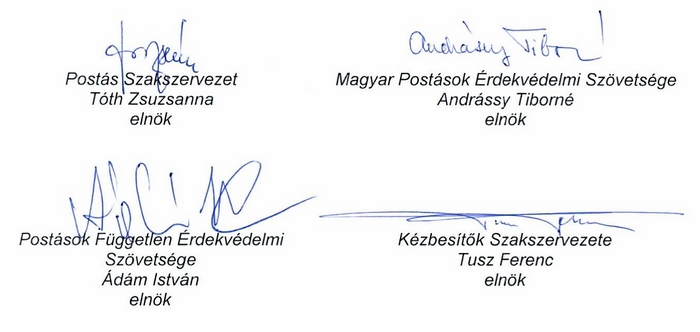 Postás Szakszervezet
Tóth Zsuzsanna
elnök
Andrássy Tiborné
Magyar Postások Érdekvédelmi Szövetsége
Andrássy Tiborné
elnök
Postások Független Érdekvédelmi
Szövetsége
Ádám István
elnök
Kézbesítők Szakszervezete
Tusz Ferenc
elnök